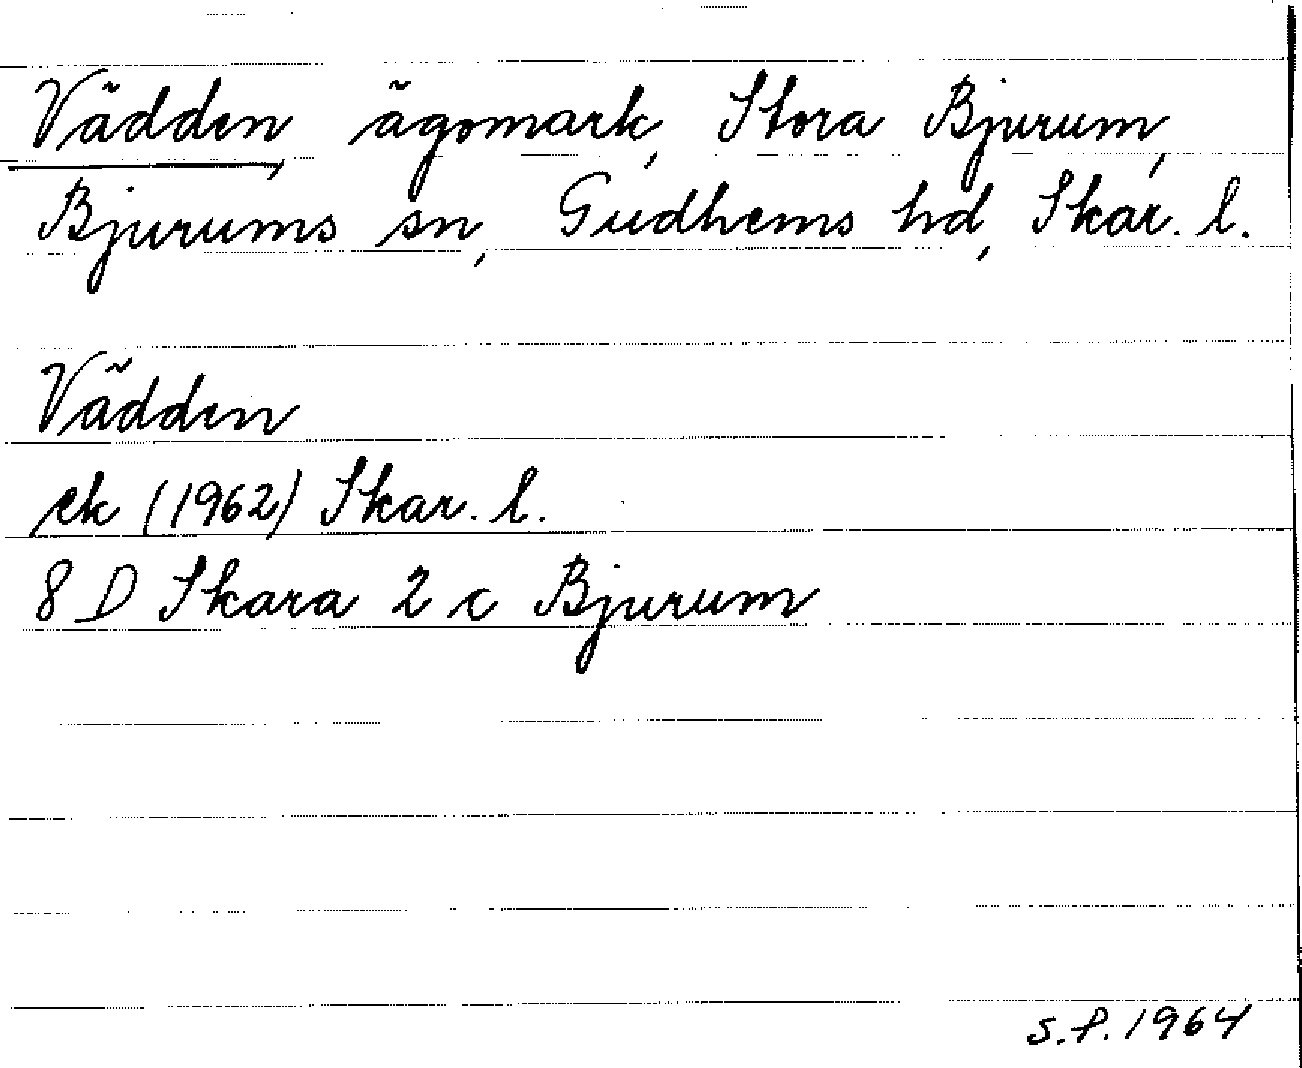 Vädden, ägomark, Stora Bjurum,
Bjurums sn, Gudhems hd, Skar. l.
Vädden
ek (1962) Skar. l.
8 D Skara 2 c Bjurum
S.P. 1964